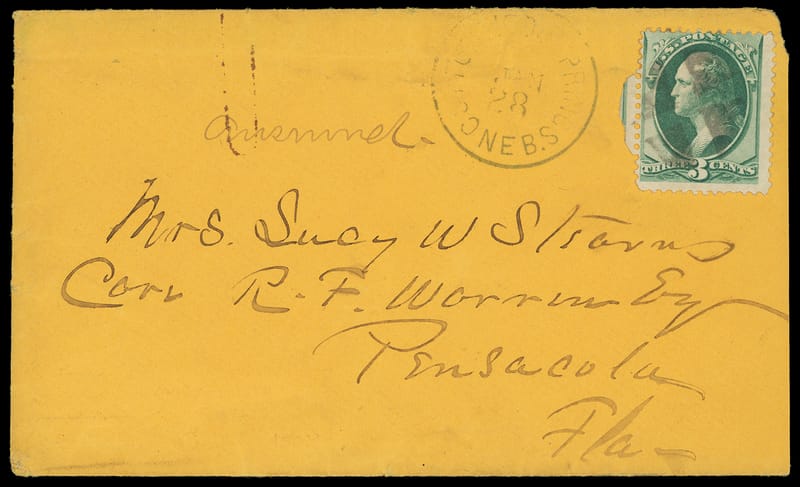 U.S. POSTAGE
JAN
28
CO NEB.S
THREE 3 CENTS
answered.
Mrs. Lucy W Stearns
Care R. F. Warren Esq
Pensacola
Fla-